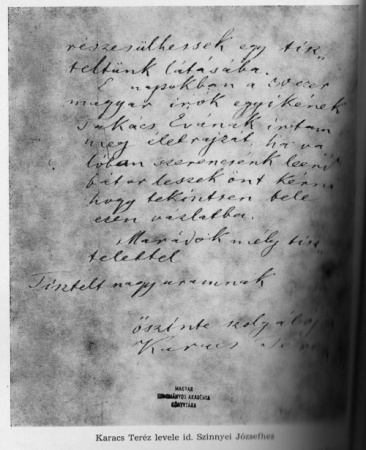 részesülhessek egy tisz
teltünk látásába.
E napokban a
magyar irók egyikének
Takács Évának irtam
meg életrajzát, ha va
lóban szerencsénk leend
bátor leszek önt kérni
hogy tekintsen bele
ezen vázlatba.
Maradok mély tisz
telettel
Tisztelt nagy uramnak
őszinte szolgálója
Karacs
MAGYAR
TUDOMÁNYOS AKADÉMIA
KÖNYVTÁRA
Karacs Teréz levele id. Szinnyei Józsefhez